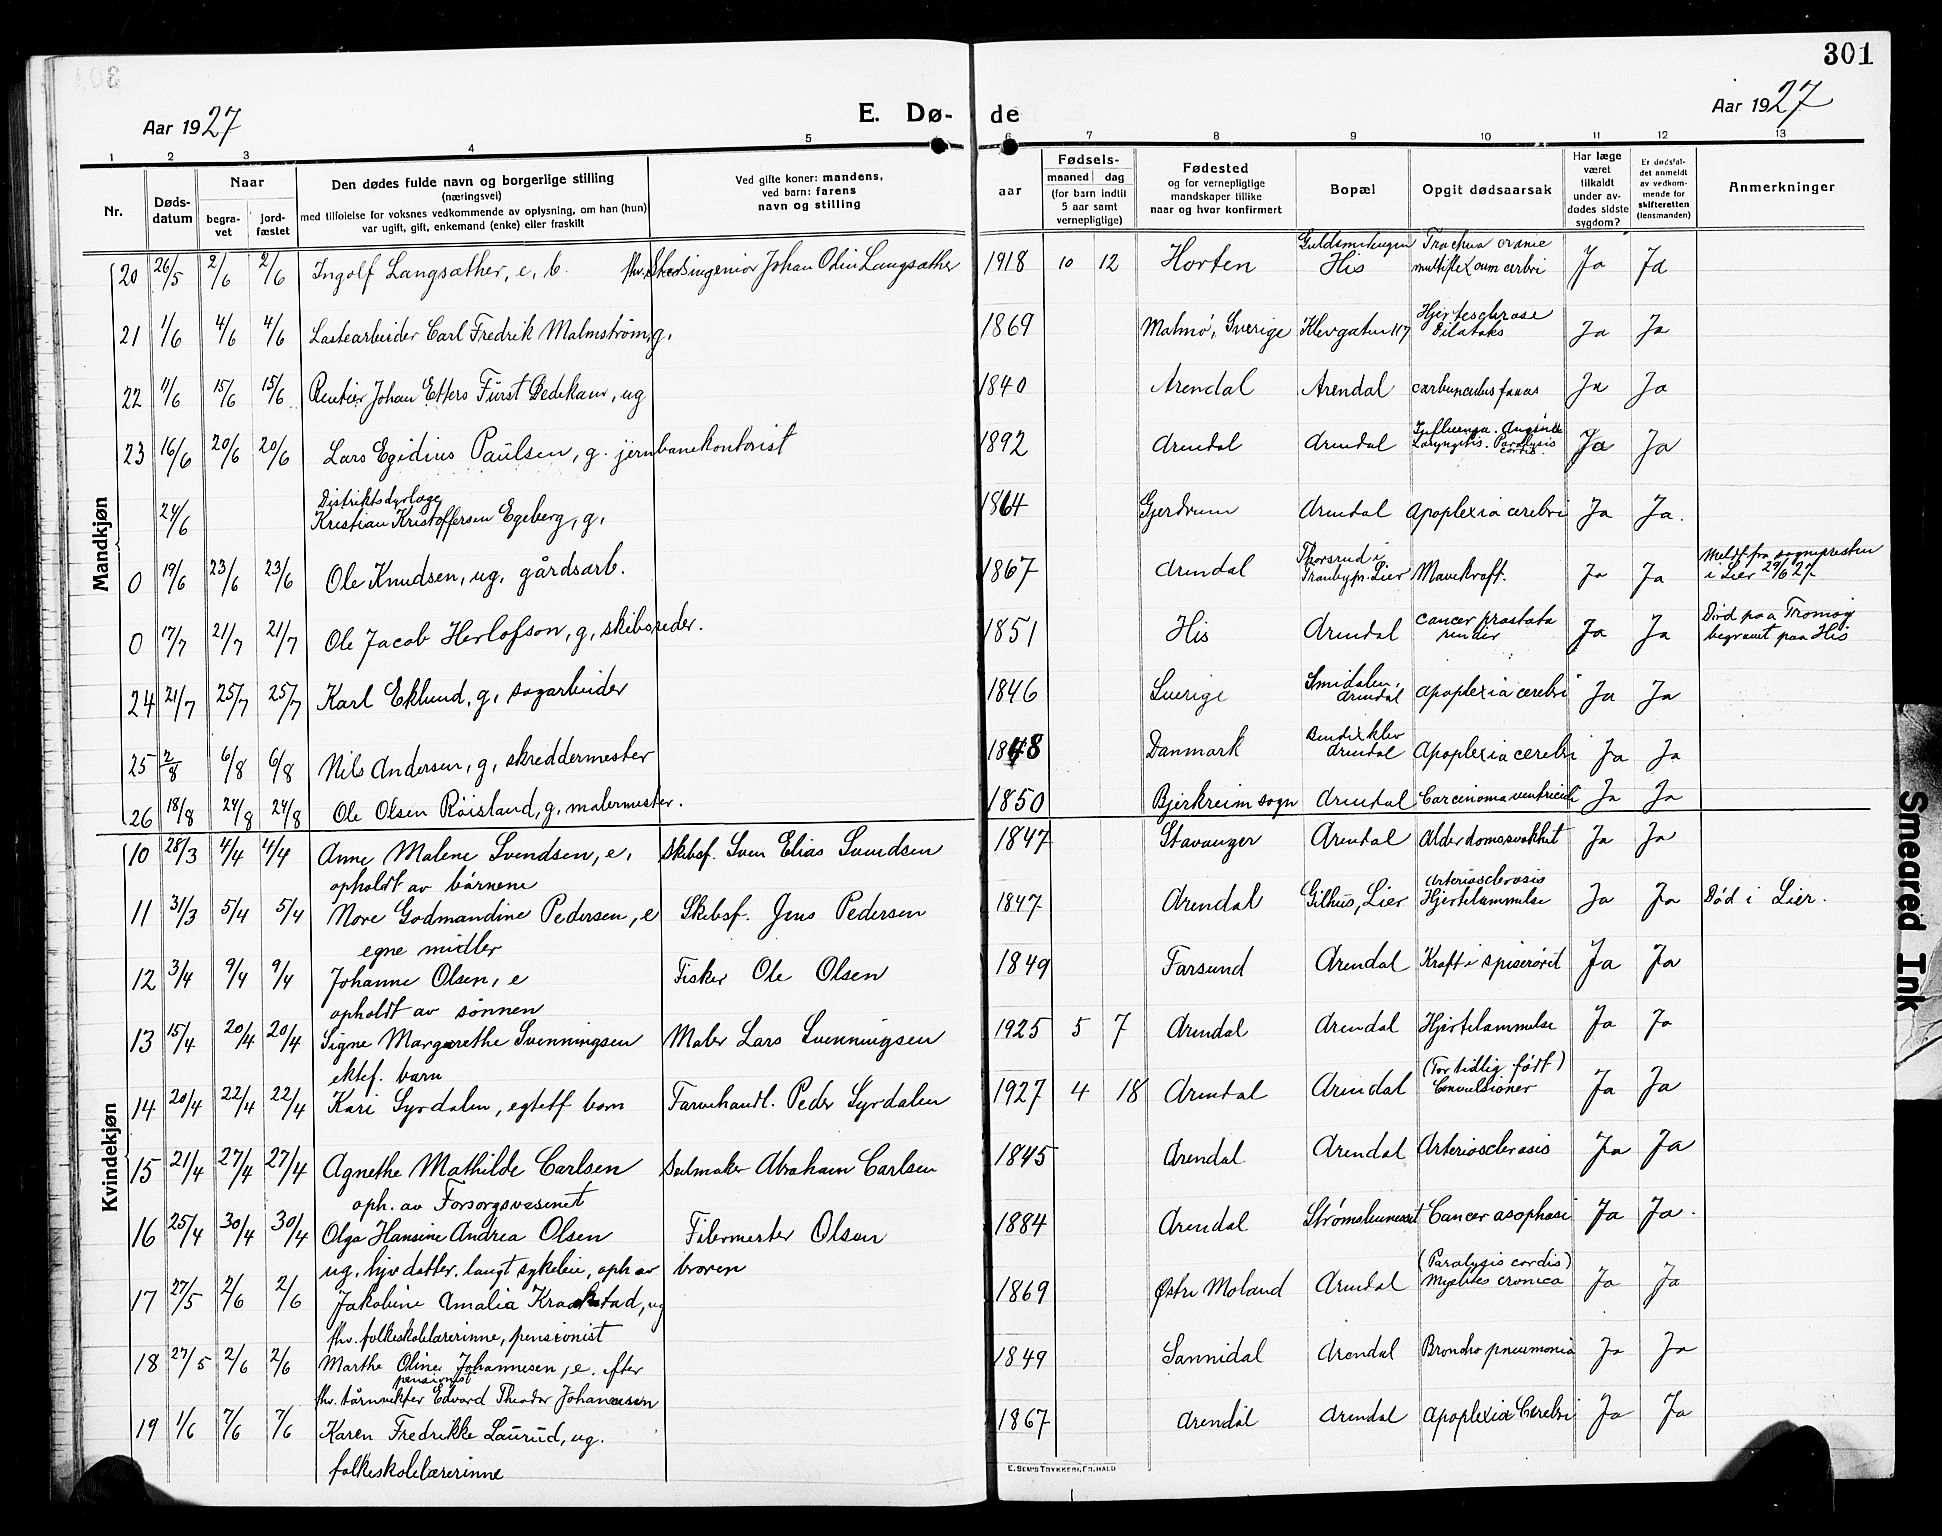 301
Aar 1927
E. Dø-
de
Aar 1927
1 2 3 4 5 6 7 8 9 10 11 12 13
Nr.
Døds-
datum
Naar
begra-
vet
jord-
fæstet
Den dødes fulde navn og borgerlige stilling
(næringsvei)
med tilføielse for voksnes vedkommende av oplysning, om han (hun)
var ugift, gift, enkemand (enke) eller fraskilt
Ved gifte koner: mandens,
ved barn: farens
navn og stilling
aar
Fødsels-
maaned dag
(for barn indtil
5 aar samt
vernepligtige)
Fødested
og for vernepligtige
mandskaper tillike
naar og hvor konfirmert
Bopæl
Opgit dødsaarsak
Har læge
været
tilkaldt
under av-
dødes sidste
sygdom?
Er dødsfal-
det anmeldt
av vedkom-
mende for
skifteretten
(lensmanden)
Anmerkninger
Mandkjøn
20 26/5 2/6 2/6 Ingolf Langsæther, e, b. Johan Odin Langsæther 1918 10 12 Horten His Ja Ja
21 1/6 4/6 4/6 Lastearbeider Carl Fredrik Malmstrøm, g. 1869 Malmø, Sverige Klevgaten 117 Ja Ja
22 11/6 15/6 15/6 Rentier Johan Ellers Fürst Dedekam, ug 1840 Arendal Arendal Ja Ja
23 16/6 20/6 20/6 Lars Egidius Paulsen, g. jernbanekontorist 1892 Arendal Arendal Influenza. Angina
Laryngitis. Paralysis
cordis Ja Ja
24/6 Distriktsdyrlæge
Kristian Kristoffersen Egeberg, g, 1864 Gjerdrum Arendal Apoplexia cerebri Ja Ja.
0 19/6 23/6 23/6 Ole Knudsen, ug, gårdsarb. 1867 Arendal Thorsrud i
Tranbygr. Lier Mavekræft. Ja Ja Meldt fra sognepresten
i Lier 29/6 27
0 17/7 21/7 21/7 Ole Jacob Herlofson, g, skibsreder. 1851 His Arendal cancer prostata Ja Ja Død paa Tromøy
begravet paa His
24 21/7 25/7 25/7 Karl Eklund, g, sagarbeider 1846 Sverige Smidalen,
Arendal Apoplexia cerebri Ja Ja
25 2/8 6/8 6/8 Nils Andersen, g, skreddermester 1848 Danmark Bendiksklev
Arendal Apoplexia cerebri Ja Ja
26 18/8 24/8 24/8 Ole Olsen Röisland, g, malermester. 1850 Bjerkreim sogn Arendal Carcinoma ventriculi Ja Ja
Kvindekjøn
10 28/3 4/4 4/4 Anne Malene Svendsen, e, Skibsf. Sven Elias Svendsen 1847 Stavanger Arendal Alderdomssvakhet Ja Ja
opholdt av børnene
11 31/3 5/4 5/4 More Godmandine Pedersen, e Skibsf. Jens Pedersen 1847 Arendal Gilhus, Lier Arteriosclerosis
Hjertelammelse Ja Ja Død i Lier.
egne midler
12 3/4 9/4 9/4 Johanne Olsen, e Fisker Ole Olsen 1849 Farsund Arendal Kræft i spiserøret Ja Ja
opholdt av sønnen
13 15/4 20/4 20/4 Signe Margrethe Svenningsen Maler Lars Svenningsen 1925 5 7 Arendal Arendal Hjertelammelse Ja Ja
ektef. barn
14 20/4 22/4 22/4 Kari Syrdalen, egtef barn Farvehandl. Peder Syrdalen 1927 4 18 Arendal Arendal (For tidlig født)
Convulsioner Ja Ja
15 21/4 27/4 27/4 Agnethe Mathilde Carlsen Seilmaker Abraham Carlsen 1845 Arendal Arendal Arteriosclerosis Ja Ja
oph. av Forsorgsvesenet
16 25/4 30/4 30/4 Olga Hansine Andrea Olsen Filermester Olsen 1884 Arendal Strømsbuneset Cancer Ja Ja.
ug. hjv datter. langt sykeleie, oph av broren
17 27/5 2/6 2/6 Jakobine Amalia Kraakstad, ug 1869 Østre Moland Arendal (Paralysis cordis)
Myelites cronica Ja Ja
fhv. folkeskolelærerinne, pensionist
18 27/5 2/6 2/6 Marthe Oline Johannesen, e. efter 1849 Sannidal Arendal Broncho pneumonia Ja Ja
pensionist
fhv. tårnvekter Edvard Theodor Johannesen
19 1/6 7/6 7/6 Karen Fredrikke Laurud, ug. 1867 Arendal Arendal Apoplexia Cerebri Ja Ja
folkeskolelærerinne
E. SEM'S TRYKKERI, FR.HALD
Smeared Ink